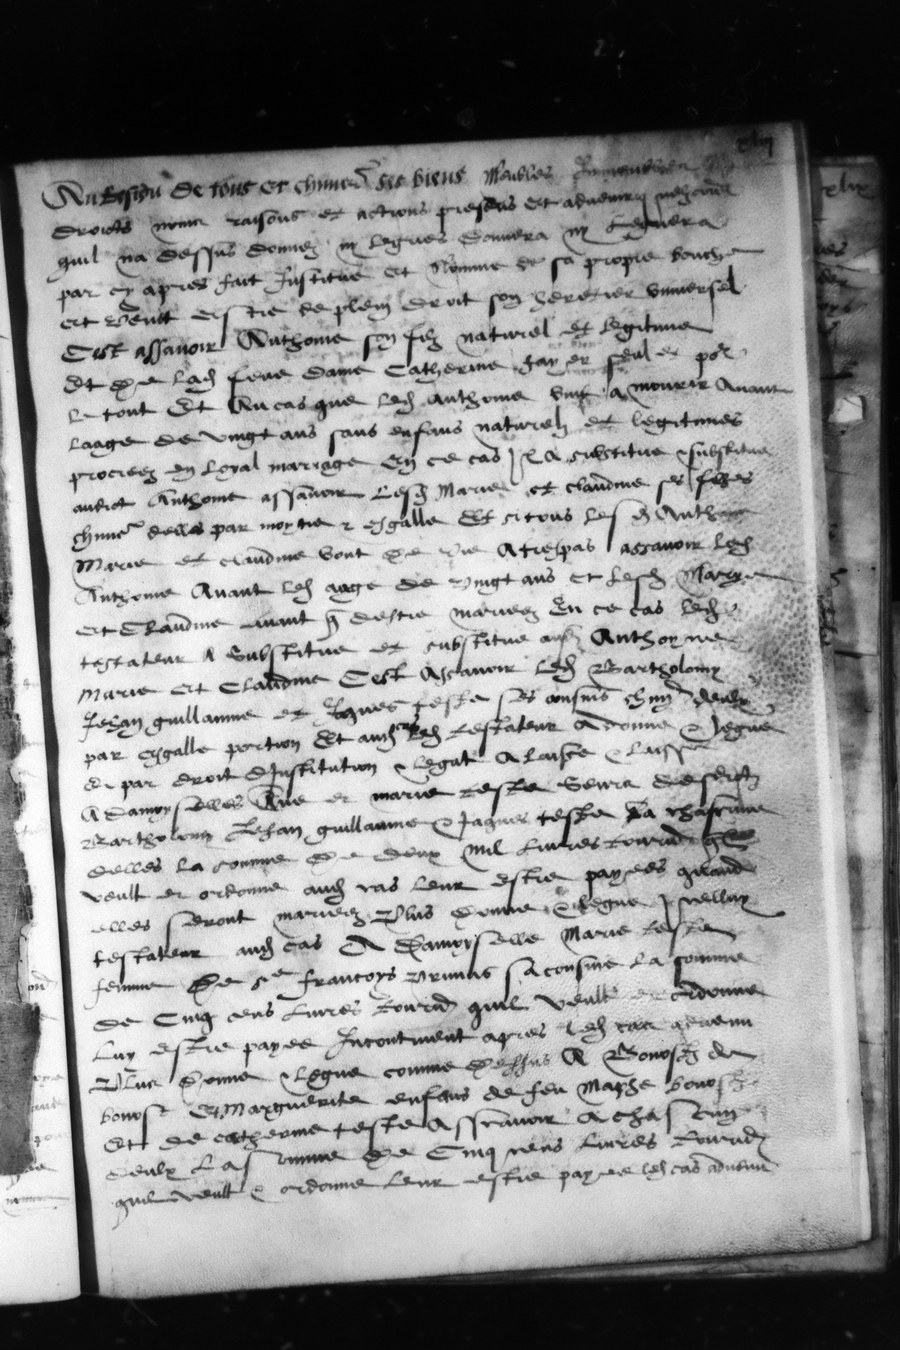 Au Residu de tous et chũns ses biens Meubles Immeubles
droicts noms raisons et actions presens et advenir
quil na dessus donnez ny legues donnera ny leguera
par cy apres fait Institue et Nomme de sa propre bouche
et veult estre de plein droit son heretier universel
Cest assavoir Anthoine son filz naturel et legitime
Et de lad feue dame Catherine seul et por
le tout Et Au cas que led Anthoine vint a mourir Avant
laage de vingt ans sans enfans naturelz et legitimes
procreez en loyal marriage En ce cas Il A substitue & substitue
audict Anthoine assavoir Lesd Marie et claudine ses filles
chũne delles par moytie & esgalle Et si tous lesd Anthoine
Marie et claudine vont de vie A trespas assavoir led
Anthoine Avant led aage de vingt ans et lesd Marye
et Claudine avant q destre mariees En ce cas led
testateur A Substitue et substitue ausd Anthoyne
Marie et Claudine Cest Assavoir lesd Bartholomy
Jehan guillaume et Jques teste ses cousins chũn deulx
par esgalle portion Et aud cas led testateur A donne & legue
& par droit dInstitution & legat A laisse & laisse
A Damoyselles Anne et marie teste seurs desdicts
Bartholomy Jehan guillaume & Jaques teste A chascune
delles la somme de deux mil livres tourñ
veult et ordonne aud cas leur estre payees quand
elles seront mariees Plus donne & legue Icelluy
testateur aud cas A Damoyselle Marie teste
femme de sr francoys sa cousine la somme
de Cinq cens livres tourñ quil veult et ordonne
luy estre payee Incontinent apres led cas advenu
Plus donne & legue comme dessus A
Et Marguerite enfans de feu
Et de catherine teste Asscavoir A chascun
deulx La somme de Cinq cens livres tourñ
quil veult & ordonne leur estre payee led cas advenu